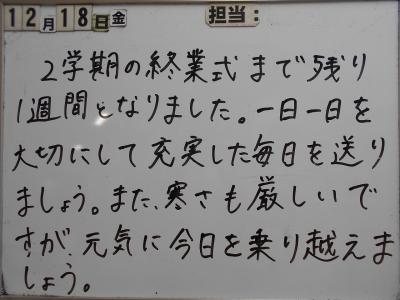 12月18日金 担当:
2学期の終業式まで残り
1週間となりました。一日一日を
大切にして充実した毎日を送り
ましょう。また、寒さも厳しいで
すが、元気に今日を乗り越えま
しょう。